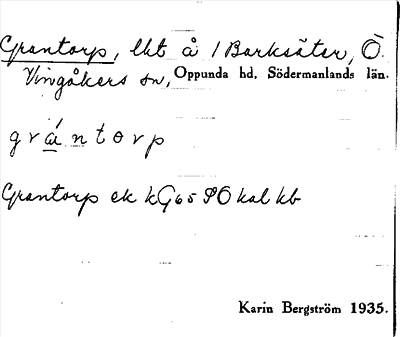 Grantorp, lht å / Barksäter, Ö.
Vingåkers sn, Oppunda hd, Södermanlands län.
grántorp
Grantorp ek kG65 SO kal kb
Karin Bergström 1935.